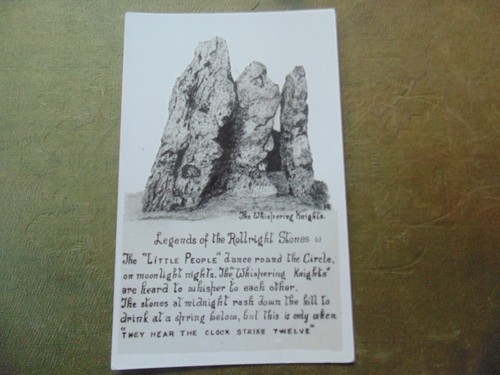 The Whispering Knights.
Legends of the Rollright Stones
The "LITTLE PEOPLE" dance round the Circle,
on moonlight nights. The "Whispering Knights"
are heard to whisper to each other.
The stones at midnight rush down the hill to
drink at a spring below, but this is only when
"THEY HEAR THE CLOCK STRIKE TWELVE"